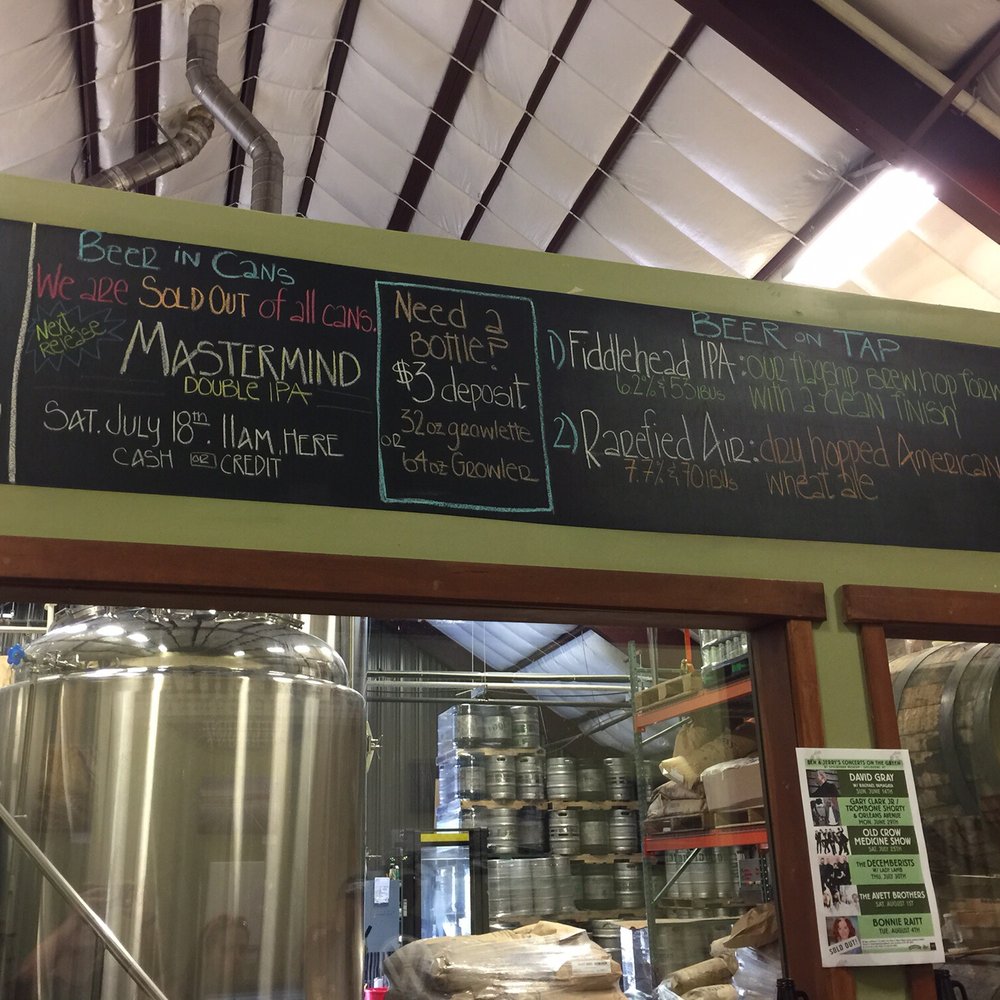 Beer in Cans
We are SOLD OUT of all cans.
Next
Release
MASTERMIND
DOUBLE IPA
SAT. JULY 18th. 11AM, HERE
CASH OR CREDIT
Need a
Bottle?
$3 deposit
32oz growlette
OR
64oz Growler
BEER ON TAP
1) Fiddlehead IPA: our flagship brew, hop forw
6.2% & 53 IBUs with a clean finish
2) Rarefied Air: dry hopped American
7.7% & 70 IBUs wheat ale
BEN & JERRY'S CONCERTS ON THE GREEN
DAVID GRAY
SUN. JUNE 14TH
GARY CLARK JR /
TROMBONE SHORTY
& ORLEANS AVENUE
MON. JUNE 29TH
OLD CROW
MEDICINE SHOW
SAT. JULY 25TH
THE DECEMBERISTS
W/ LADY LAMB
THU. JULY 30TH
THE AVETT BROTHERS
SAT. AUGUST 1ST
BONNIE RAITT
TUE. AUGUST 4TH
SOLD OUT!